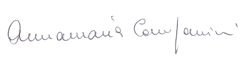 Annamaria Campanini